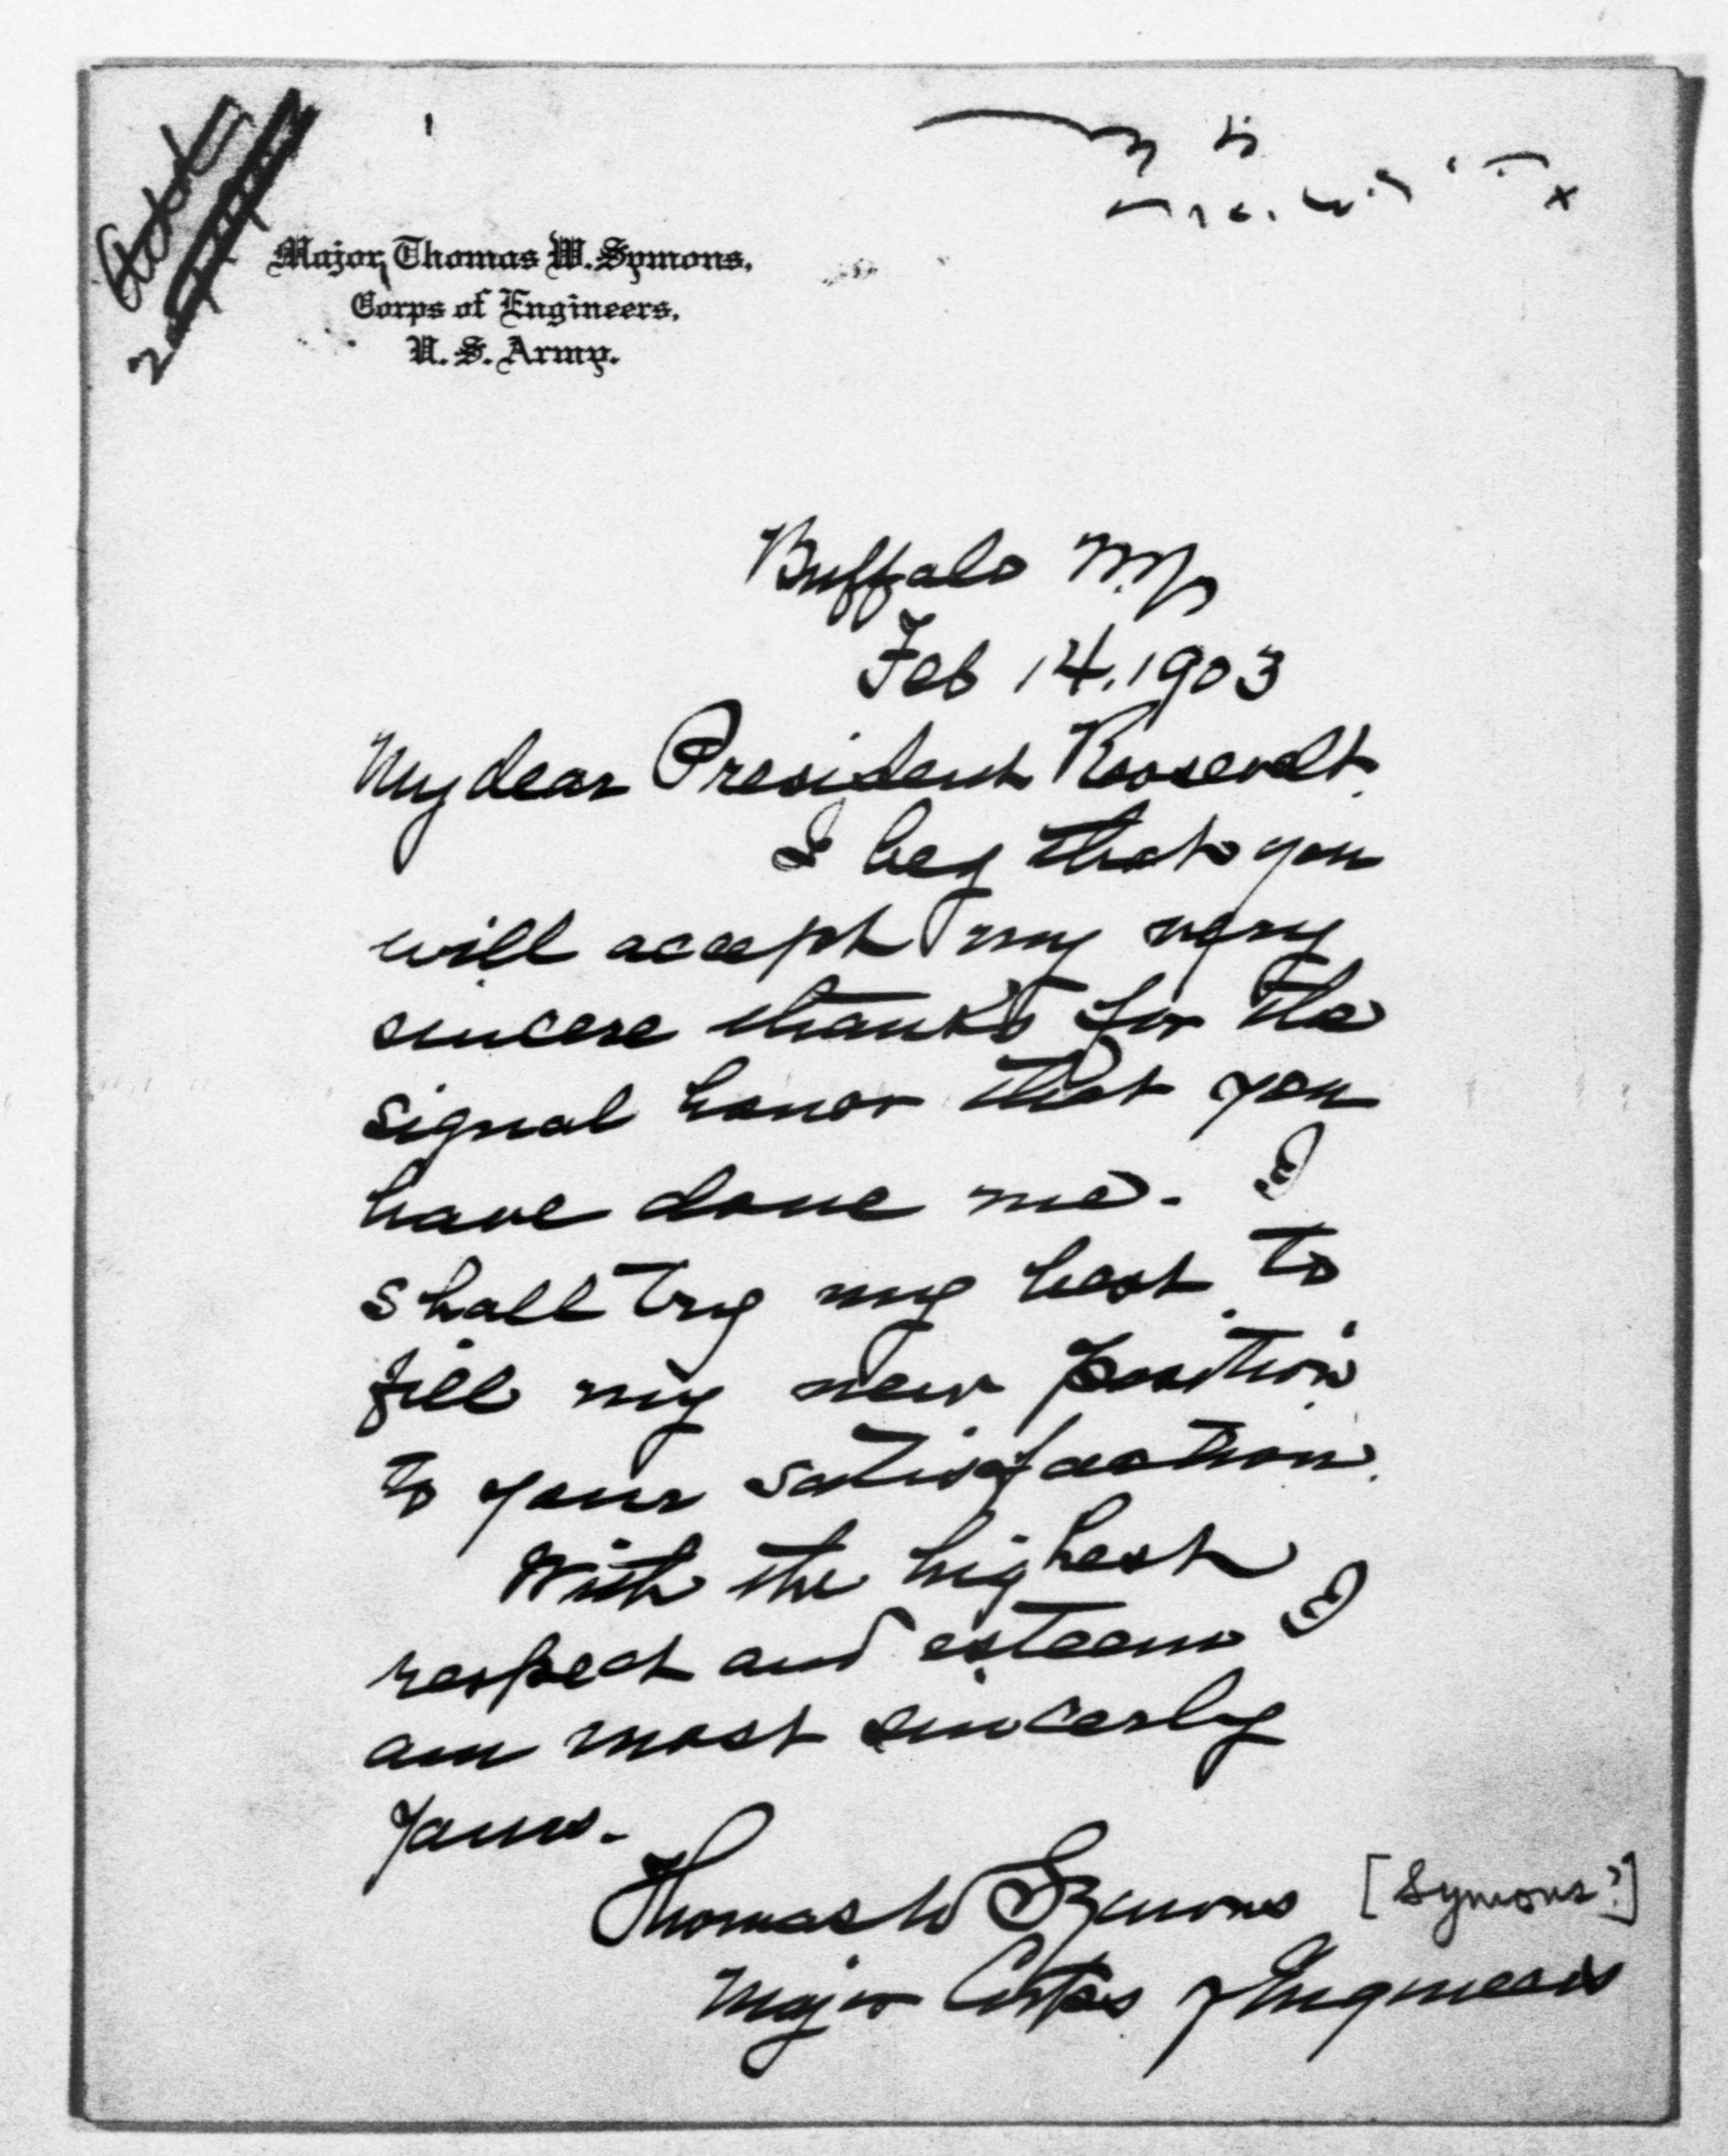 Major, Thomas W. Symons,
Corps of Engineers,
U. S. Army.
Buffalo N.Y.
Feb 14, 1903
My dear President Roosevelt.
I beg that you
will accept my very
sincere thanks for the
signal honor that you
have done me. I
shall try my best to
fill my new position
to your satisfaction.
With the highest
respect and esteem I
am most sincerly
yours.
Thomas W Symons [Symons?]
Major Corps of Engineers